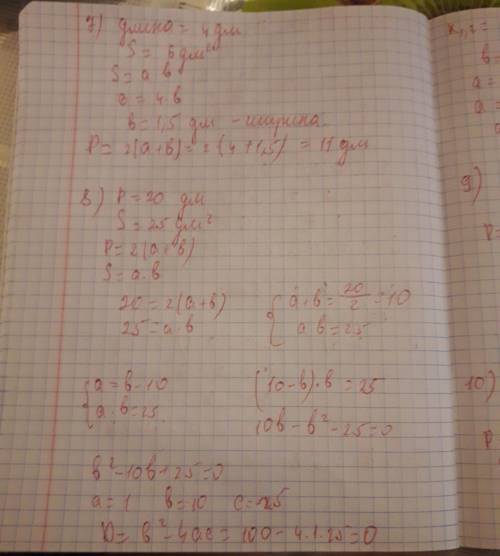 7) длина = 4 дм
S = 6 дм²
S = a·b
6 = 4·b
b = 1,5 дм - ширина
P = 2(a+b) = 2(4+1,5) = 11 дм
8) P = 20 дм
S = 25 дм²
P = 2(a+b)
S = a·b
20 = 2(a+b)
25 = a·b
{ a+b = 20/2 = 10
a·b = 25
{ a = b - 10
a·b = 25
(10-b)·b = 25
10b - b² - 25 = 0
b² - 10b + 25 = 0
a = 1 b = 10 c = 25
D = b² - 4ac = 100 - 4·1·25 = 0
x₁,₂ =
b =
a =
a =
9)
P =
10)
P